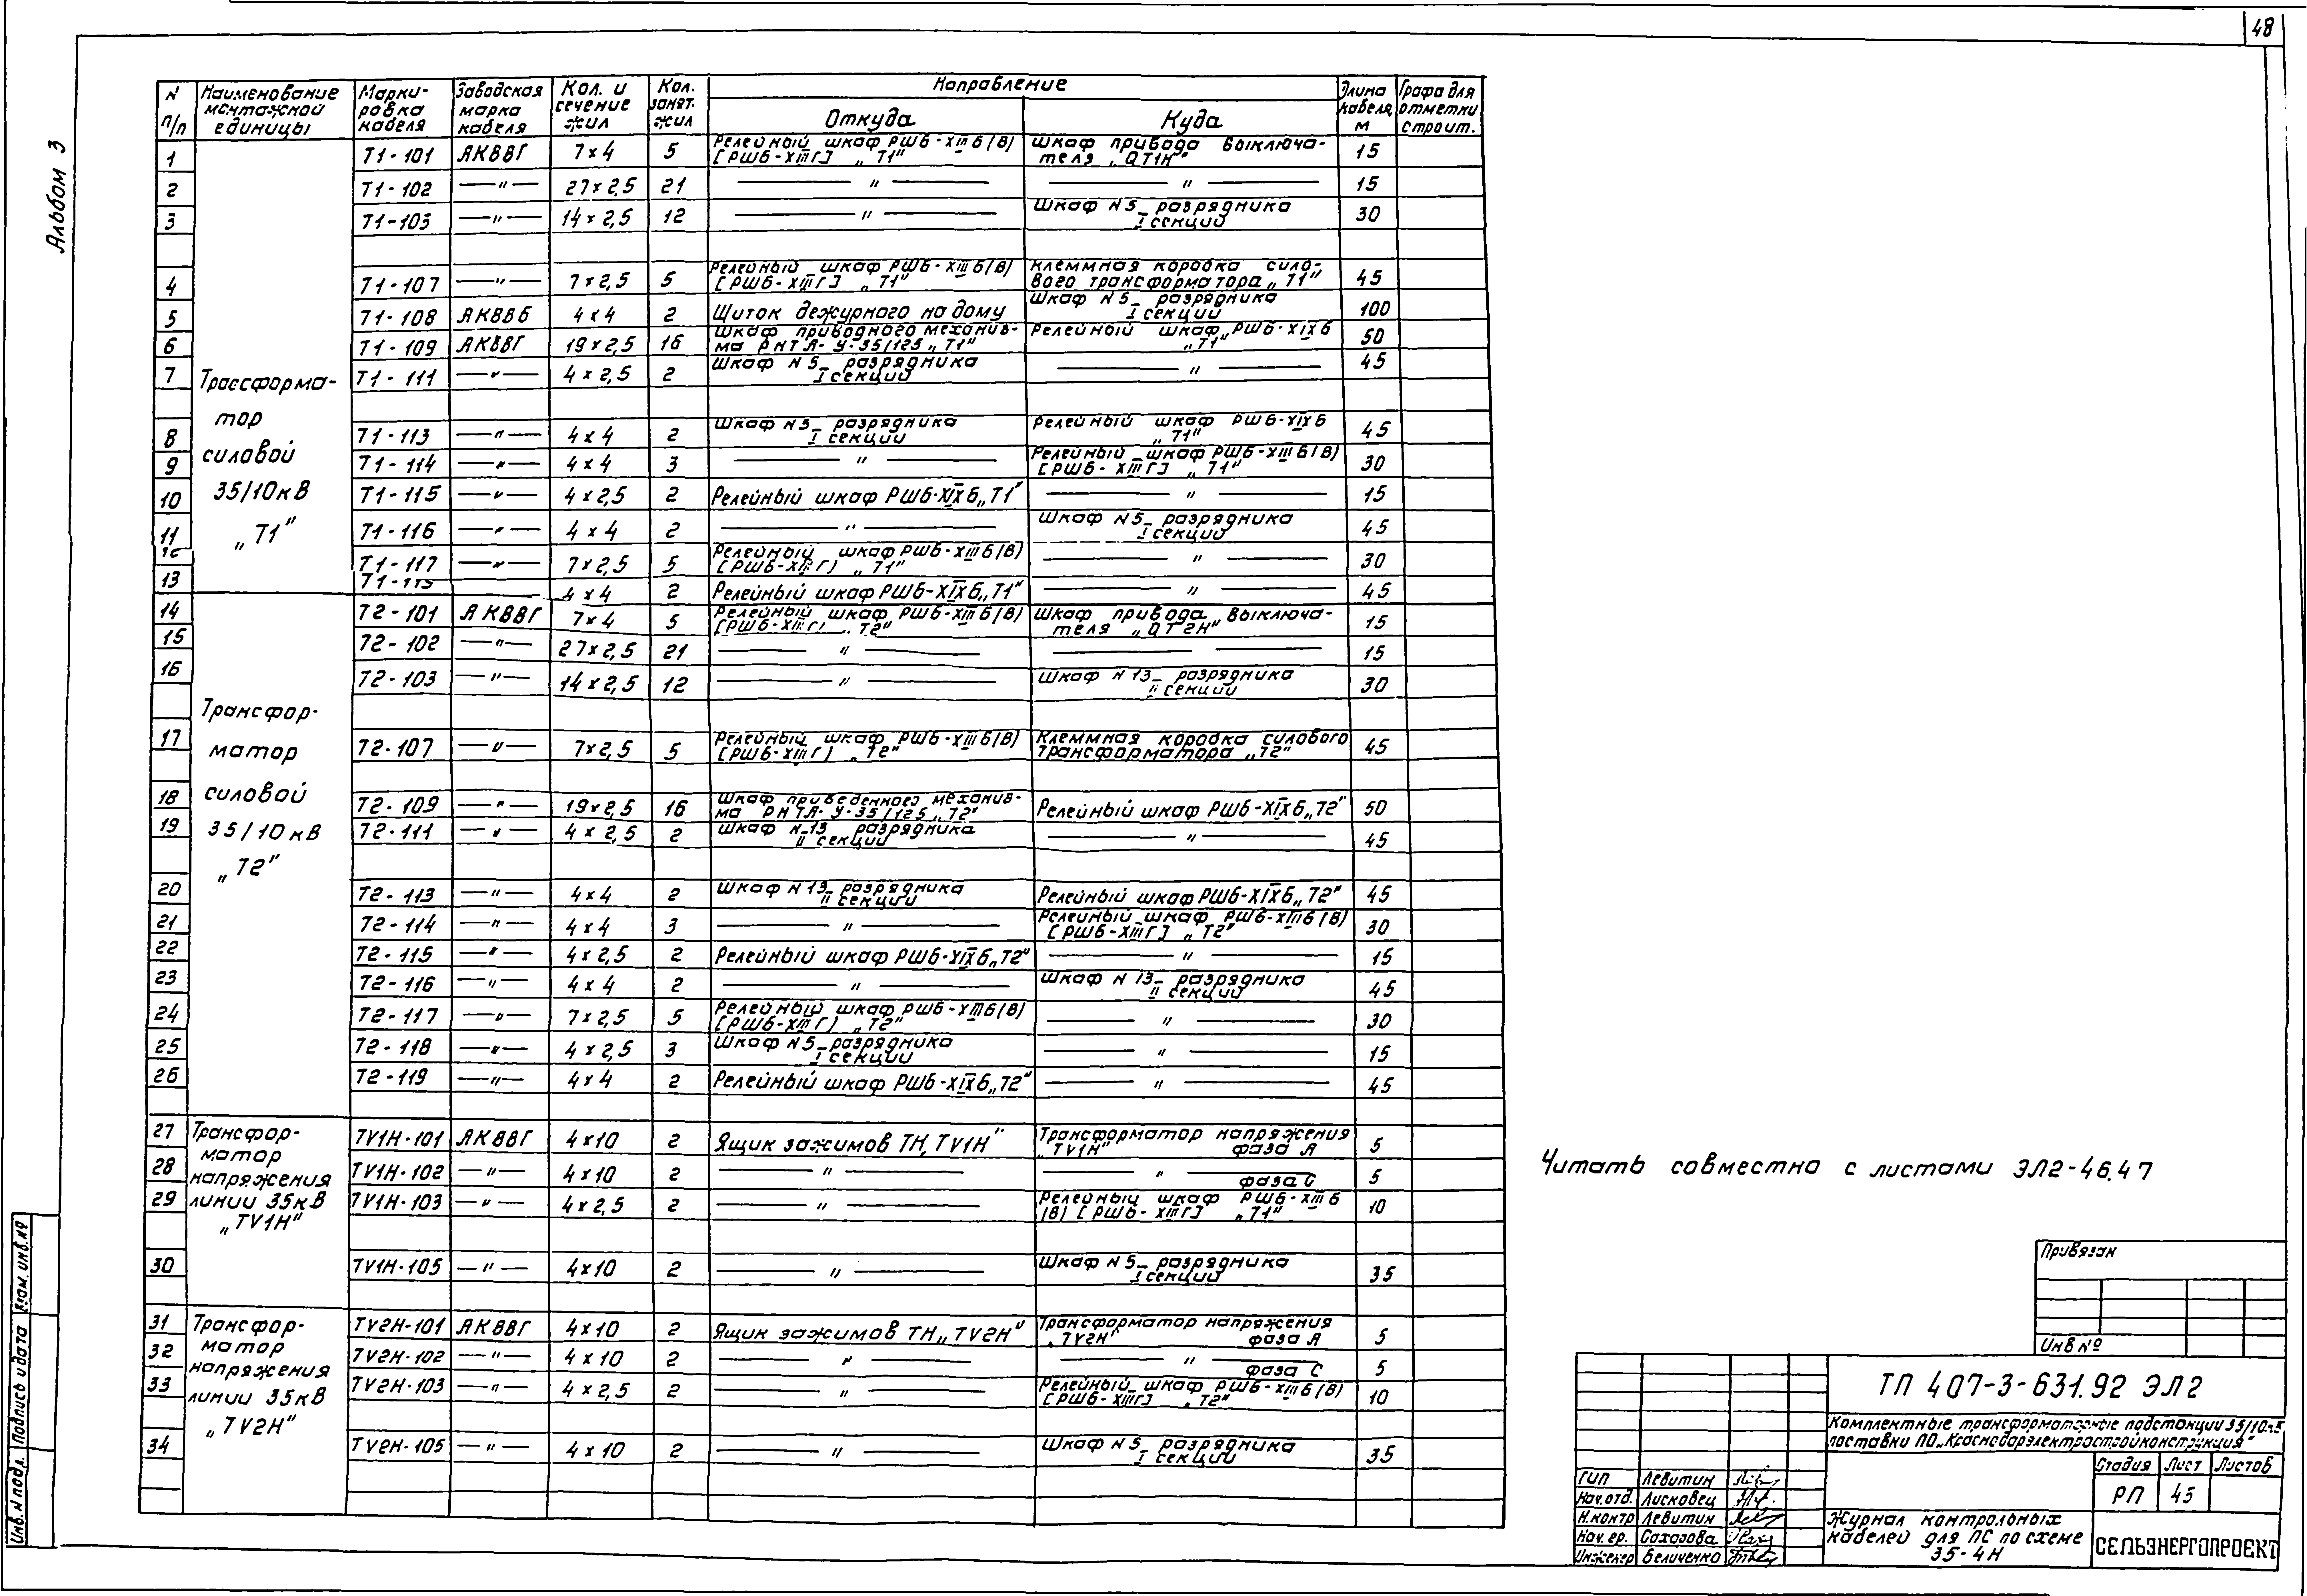 48
Альбом 3
N п/п | Наименование монтажной единицы | Марки-ровка кабеля | Заводская марка кабеля | Кол. и сечение жил | Кол. занят. жил | Направление | Длина кабеля, м | Графа для отметки строит.
Откуда | Куда
Трассформа-
тор
силовой
35/10кВ
„Т1"
1 | Т1-101 | АКВВГ | 7×4 | 5 | Релейный шкаф РШБ-XIII б(в) [РШБ-XIII г] „Т1" | Шкаф привода выключа-теля „QТ1Н" | 15
2 | Т1-102 | —"— | 27×2,5 | 21 | —"— | —"— | 15
3 | Т1-103 | —"— | 14×2,5 | 12 | —"— | Шкаф N5_ разрядника I секции | 30
4 | Т1-107 | —"— | 7×2,5 | 5 | Релейный шкаф РШБ-XIII б(в) [РШБ-XIII г] „Т1" | Клеммная коробка сило-вого трансформатора „Т1" | 45
5 | Т1-108 | АКВВБ | 4×4 | 2 | Щиток дежурного на дому | Шкаф N5_ разрядника I секции | 100
6 | Т1-109 | АКВВГ | 19×2,5 | 16 | Шкаф приводного механиз-ма РНТА-У-35/125 „Т1" | Релейный шкаф „РШБ-XIX б „Т1" | 50
7 | Т1-111 | —"— | 4×2,5 | 2 | Шкаф N5_ разрядника I секции | —"— | 45
8 | Т1-113 | —"— | 4×4 | 2 | Шкаф N5_ разрядника I секции | Релейный шкаф РШБ-XIX б „Т1" | 45
9 | Т1-114 | —"— | 4×4 | 3 | —"— | Релейный шкаф РШБ-XIII б(в) [РШБ-XIII г] „Т1" | 30
10 | Т1-115 | —"— | 4×2,5 | 2 | Релейный шкаф РШБ-XIX б „Т1" | —"— | 15
11 | Т1-116 | —"— | 4×4 | 2 | —"— | Шкаф N5_ разрядника I секции | 45
Т1-117 | —"— | 7×2,5 | 5 | Релейный шкаф РШБ-XIII б(в) [РШБ-XIII г) „Т1" | —"— | 30
13 | 4×4 | 2 | Релейный шкаф РШБ-XIX б „Т1" | —"— | 45
Трансфор-
матор
силовой
35/10кВ
„Т2"
14 | Т2-101 | АКВВГ | 7×4 | 5 | Релейный шкаф РШБ-XIII б(в) [РШБ-XIII г) „Т2" | Шкаф привода выключа-теля „QТ2Н" | 15
15 | Т2-102 | —"— | 27×2,5 | 21 | —"— | —— | 15
16 | Т2-103 | —"— | 14×2,5 | 12 | —"— | Шкаф N13_ разрядника II секции | 30
17 | Т2-107 | —"— | 7×2,5 | 5 | Релейный шкаф РШБ-XIII б(в) [РШБ-XIII г) „Т2" | Клеммная коробка силового трансформатора „Т2" | 45
18 | Т2-109 | —"— | 19×2,5 | 16 | Шкаф приведенного механиз-ма РНТА-У-35/125 „Т2" | Релейный шкаф РШБ-XIX б „Т2" | 50
19 | Т2-111 | —"— | 4×2,5 | 2 | Шкаф N13 разрядника II секции | —"— | 45
20 | Т2-113 | —"— | 4×4 | 2 | Шкаф N13_ разрядника II секции | Релейный шкаф РШБ-XIX б „Т2" | 45
21 | Т2-114 | —"— | 4×4 | 3 | —"— | Релейный шкаф РШБ-XIII б(в) [РШБ-XIII г] „Т2" | 30
22 | Т2-115 | —"— | 4×2,5 | 2 | Релейный шкаф РШБ-XIX б „Т2" | —"— | 15
23 | Т2-116 | —"— | 4×4 | 2 | —"— | Шкаф N13_ разрядника II секции | 45
24 | Т2-117 | —"— | 7×2,5 | 5 | Релейный шкаф РШБ-XIII б(в) [РШБ-XIII г) „Т2" | —"— | 30
25 | Т2-118 | —"— | 4×2,5 | 3 | Шкаф N5_ разрядника I секции | —"— | 15
26 | Т2-119 | —"— | 4×4 | 2 | Релейный шкаф РШБ-XIX б „Т2" | —"— | 45
Трансфор-
матор
напряжения
линии 35кВ
„TV1Н"
27 | TV1Н-101 | АКВВГ | 4×10 | 2 | Ящик зажимов ТН, TV1Н" | Трансформатор напряжения „TV1Н" фаза А | 5
28 | TV1Н-102 | —"— | 4×10 | 2 | —"— | —"— фаза С | 5
29 | TV1Н-103 | —"— | 4×2,5 | 2 | —"— | Релейный шкаф РШБ-XIII б (в) [РШБ-XIII г] „Т1" | 10
30 | TV1Н-105 | —"— | 4×10 | 2 | —"— | Шкаф N5_ разрядника I секции | 35
Трансфор-
матор
напряжения
линии 35кВ
„TV2Н"
31 | TV2Н-101 | АКВВГ | 4×10 | 2 | Ящик зажимов ТН „TV2Н" | Трансформатор напряжения „TV2Н" фаза А | 5
32 | TV2Н-102 | —"— | 4×10 | 2 | —"— | —"— фаза С | 5
33 | TV2Н-103 | —"— | 4×2,5 | 2 | —"— | Релейный шкаф РШБ-XIII б(в) [РШБ-XIII г] „Т2" | 10
34 | TV2Н-105 | —"— | 4×10 | 2 | —"— | Шкаф N5_ разрядника I секции | 35
Читать совместно с листами ЭЛ2-46,47
Привязан
Инв Nº
ТП 407-3-631.92 ЭЛ2
Комплектные трансформаторные подстанции 35/10кВ
поставки ПО „Краснодарэлектростройконструкция"
Стадия | Лист | Листов
РП | 45
ГИП | Левитин
Нач.отд. | Лисковец
Н.контр | Левитин
Нач.ер. | Сахорова
Инженер | Беличенко
Журнал контрольных
кабелей для ПС по схеме
35-4Н
СЕЛЬЭНЕРГОПРОЕКТ
Инв. N подл. | Подпись и дата | Взам. инв. Nº